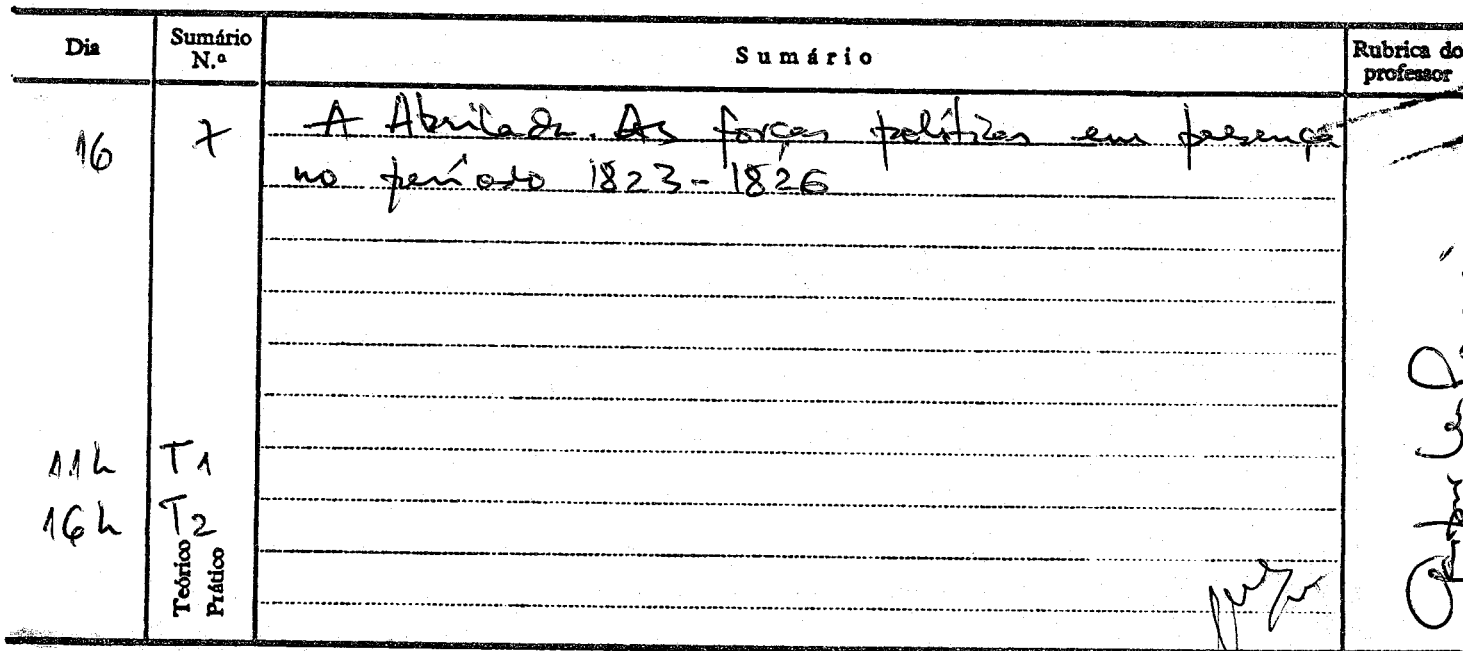 Dia
Sumário N.º
Sumário
Rubrica do professor
16
7
A Abrilada. As forças políticas em presença
no período 1823-1826
11h T1
16h T2
Teórico
Prático